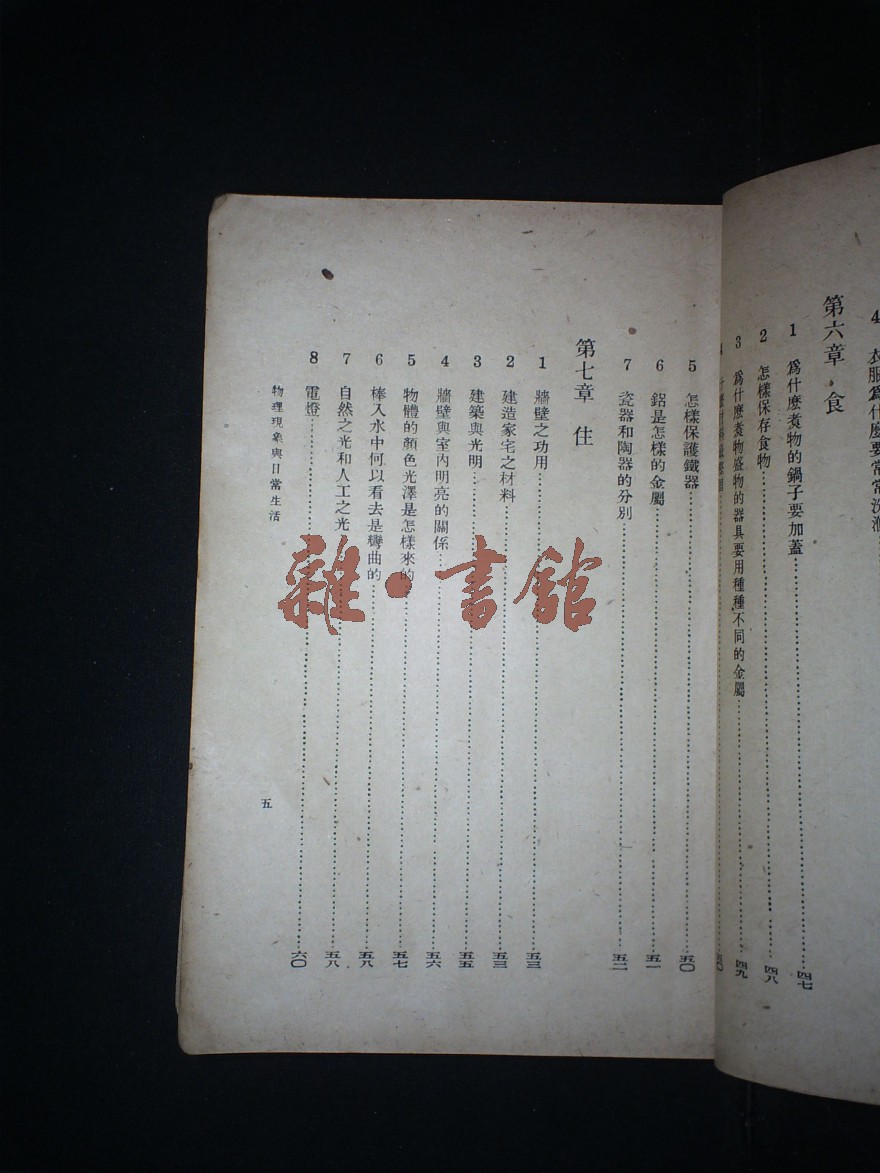 4 衣服爲什麽要常常洗滌
第六章 食
1 爲什麽煑物的鍋子要加蓋 四七
2 怎樣保存食物 四八
3 爲什麽煑物盛物的器具要用種種不同的金屬 四九
5 怎樣保護鐵器 五〇
6 鋁是怎樣的金屬 五一
7 瓷器和陶器的分別 五二
第七章 住
1 牆壁之功用 五三
2 建造家宅之材料 五三
3 建築與光明 五五
4 牆壁與室內明亮的關係 五六
5 物體的顏色光澤是怎樣來的 五七
6 棒入水中何以看去是彎曲的 五八
7 自然之光和人工之光 五八
8 電燈 六〇
物理現象與日常生活
五
雜·書館